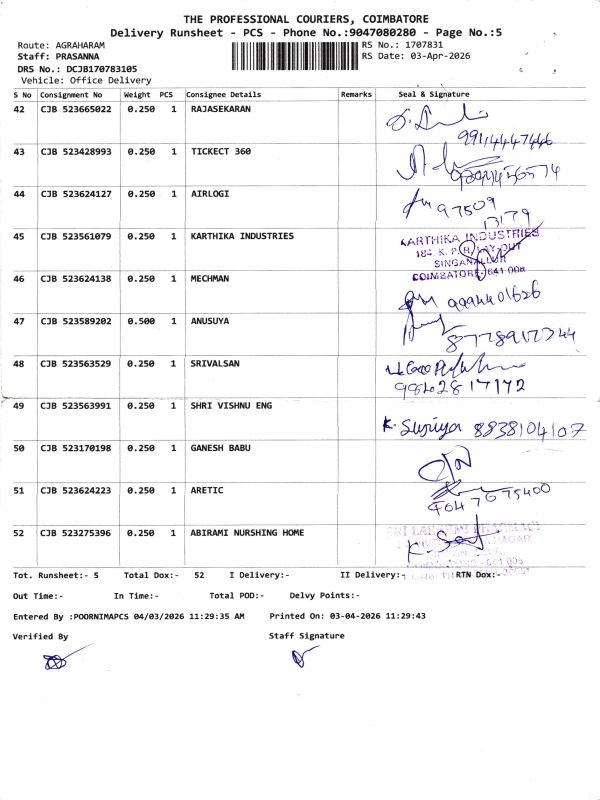 THE PROFESSIONAL COURIERS, COIMBATORE
Delivery Runsheet - PCS - Phone No.:9047080280 - Page No.:5
Route: AGRAHARAM
RS No.: 1707831
Staff: PRASANNA
RS Date: 03-Apr-2026
DRS No.: DCJB170783105
Vehicle: Office Delivery
S No Consignment No Weight PCS Consignee Details Remarks Seal & Signature
42 CJB 523665022 0.250 1 RAJASEKARAN
43 CJB 523428993 0.250 1 TICKECT 360
44 CJB 523624127 0.250 1 AIRLOGI
97509
17179
45 CJB 523561079 0.250 1 KARTHIKA INDUSTRIES
KARTHIKA INDUSTRIES
LAY-OUT
SINGANALLUR
COIMBATORE-641 005
46 CJB 523624138 0.250 1 MECHMAN
9994401626
47 CJB 523589202 0.500 1 ANUSUYA
48 CJB 523563529 0.250 1 SRIVALSAN
9842817172
49 CJB 523563991 0.250 1 SHRI VISHNU ENG
K. Suriya 8838104107
50 CJB 523170198 0.250 1 GANESH BABU
51 CJB 523624223 0.250 1 ARETIC
52 CJB 523275396 0.250 1 ABIRAMI NURSHING HOME
Tot. Runsheet:- 5 Total Dox:- 52 I Delivery:- II Delivery:- RTN Dox:-
Out Time:- In Time:- Total POD:- Delvy Points:-
Entered By :POORNIMAPCS 04/03/2026 11:29:35 AM Printed On: 03-04-2026 11:29:43
Verified By Staff Signature